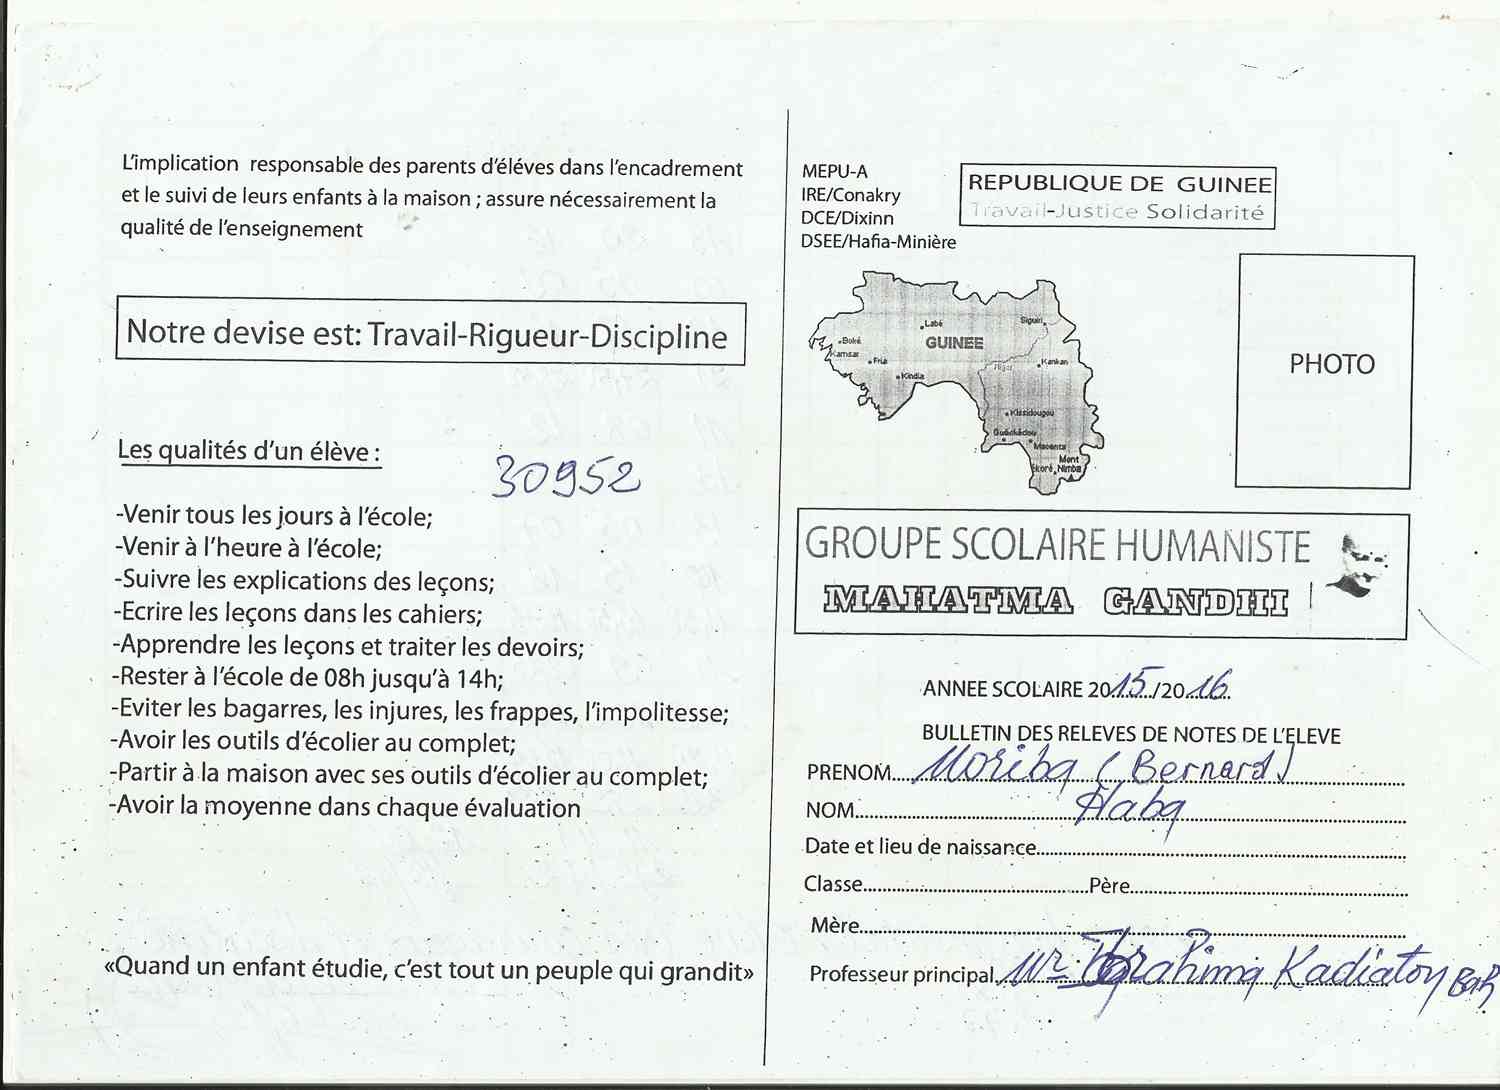 L'implication responsable des parents d'éléves dans l'encadrement
et le suivi de leurs enfants à la maison ; assure nécessairement la
qualité de l'enseignement
Notre devise est: Travail-Rigueur-Discipline
Les qualités d'un élève :
30952
-Venir tous les jours à l'école;
-Venir à l'heure à l'école;
-Suivre les explications des leçons;
-Ecrire les leçons dans les cahiers;
-Apprendre les leçons et traiter les devoirs;
-Rester à l'école de 08h jusqu'à 14h;
-Eviter les bagarres, les injures, les frappes, l'impolitesse;
-Avoir les outils d'écolier au complet;
-Partir à la maison avec ses outils d'écolier au complet;
-Avoir la moyenne dans chaque évaluation
«Quand un enfant étudie, c'est tout un peuple qui grandit»
MEPU-A
IRE/Conakry
DCE/Dixinn
DSEE/Hafia-Minière
REPUBLIQUE DE GUINEE
Travail-Justice Solidarité
Labé
Siguiri
Boké
GUINEE
Kamsar
Fria
Niger
Kankan
Kindia
Kissidougou
Guékédou
Macenta
Mont
Nimba
PHOTO
GROUPE SCOLAIRE HUMANISTE
MAHATMA GANDHI
ANNEE SCOLAIRE 2015/2016
BULLETIN DES RELEVES DE NOTES DE L'ELEVE
PRENOM Moriba (Bernard)
NOM Haba
Date et lieu de naissance
Classe Père
Mère
Professeur principal Mr Ibrahima Kadiatou Bah